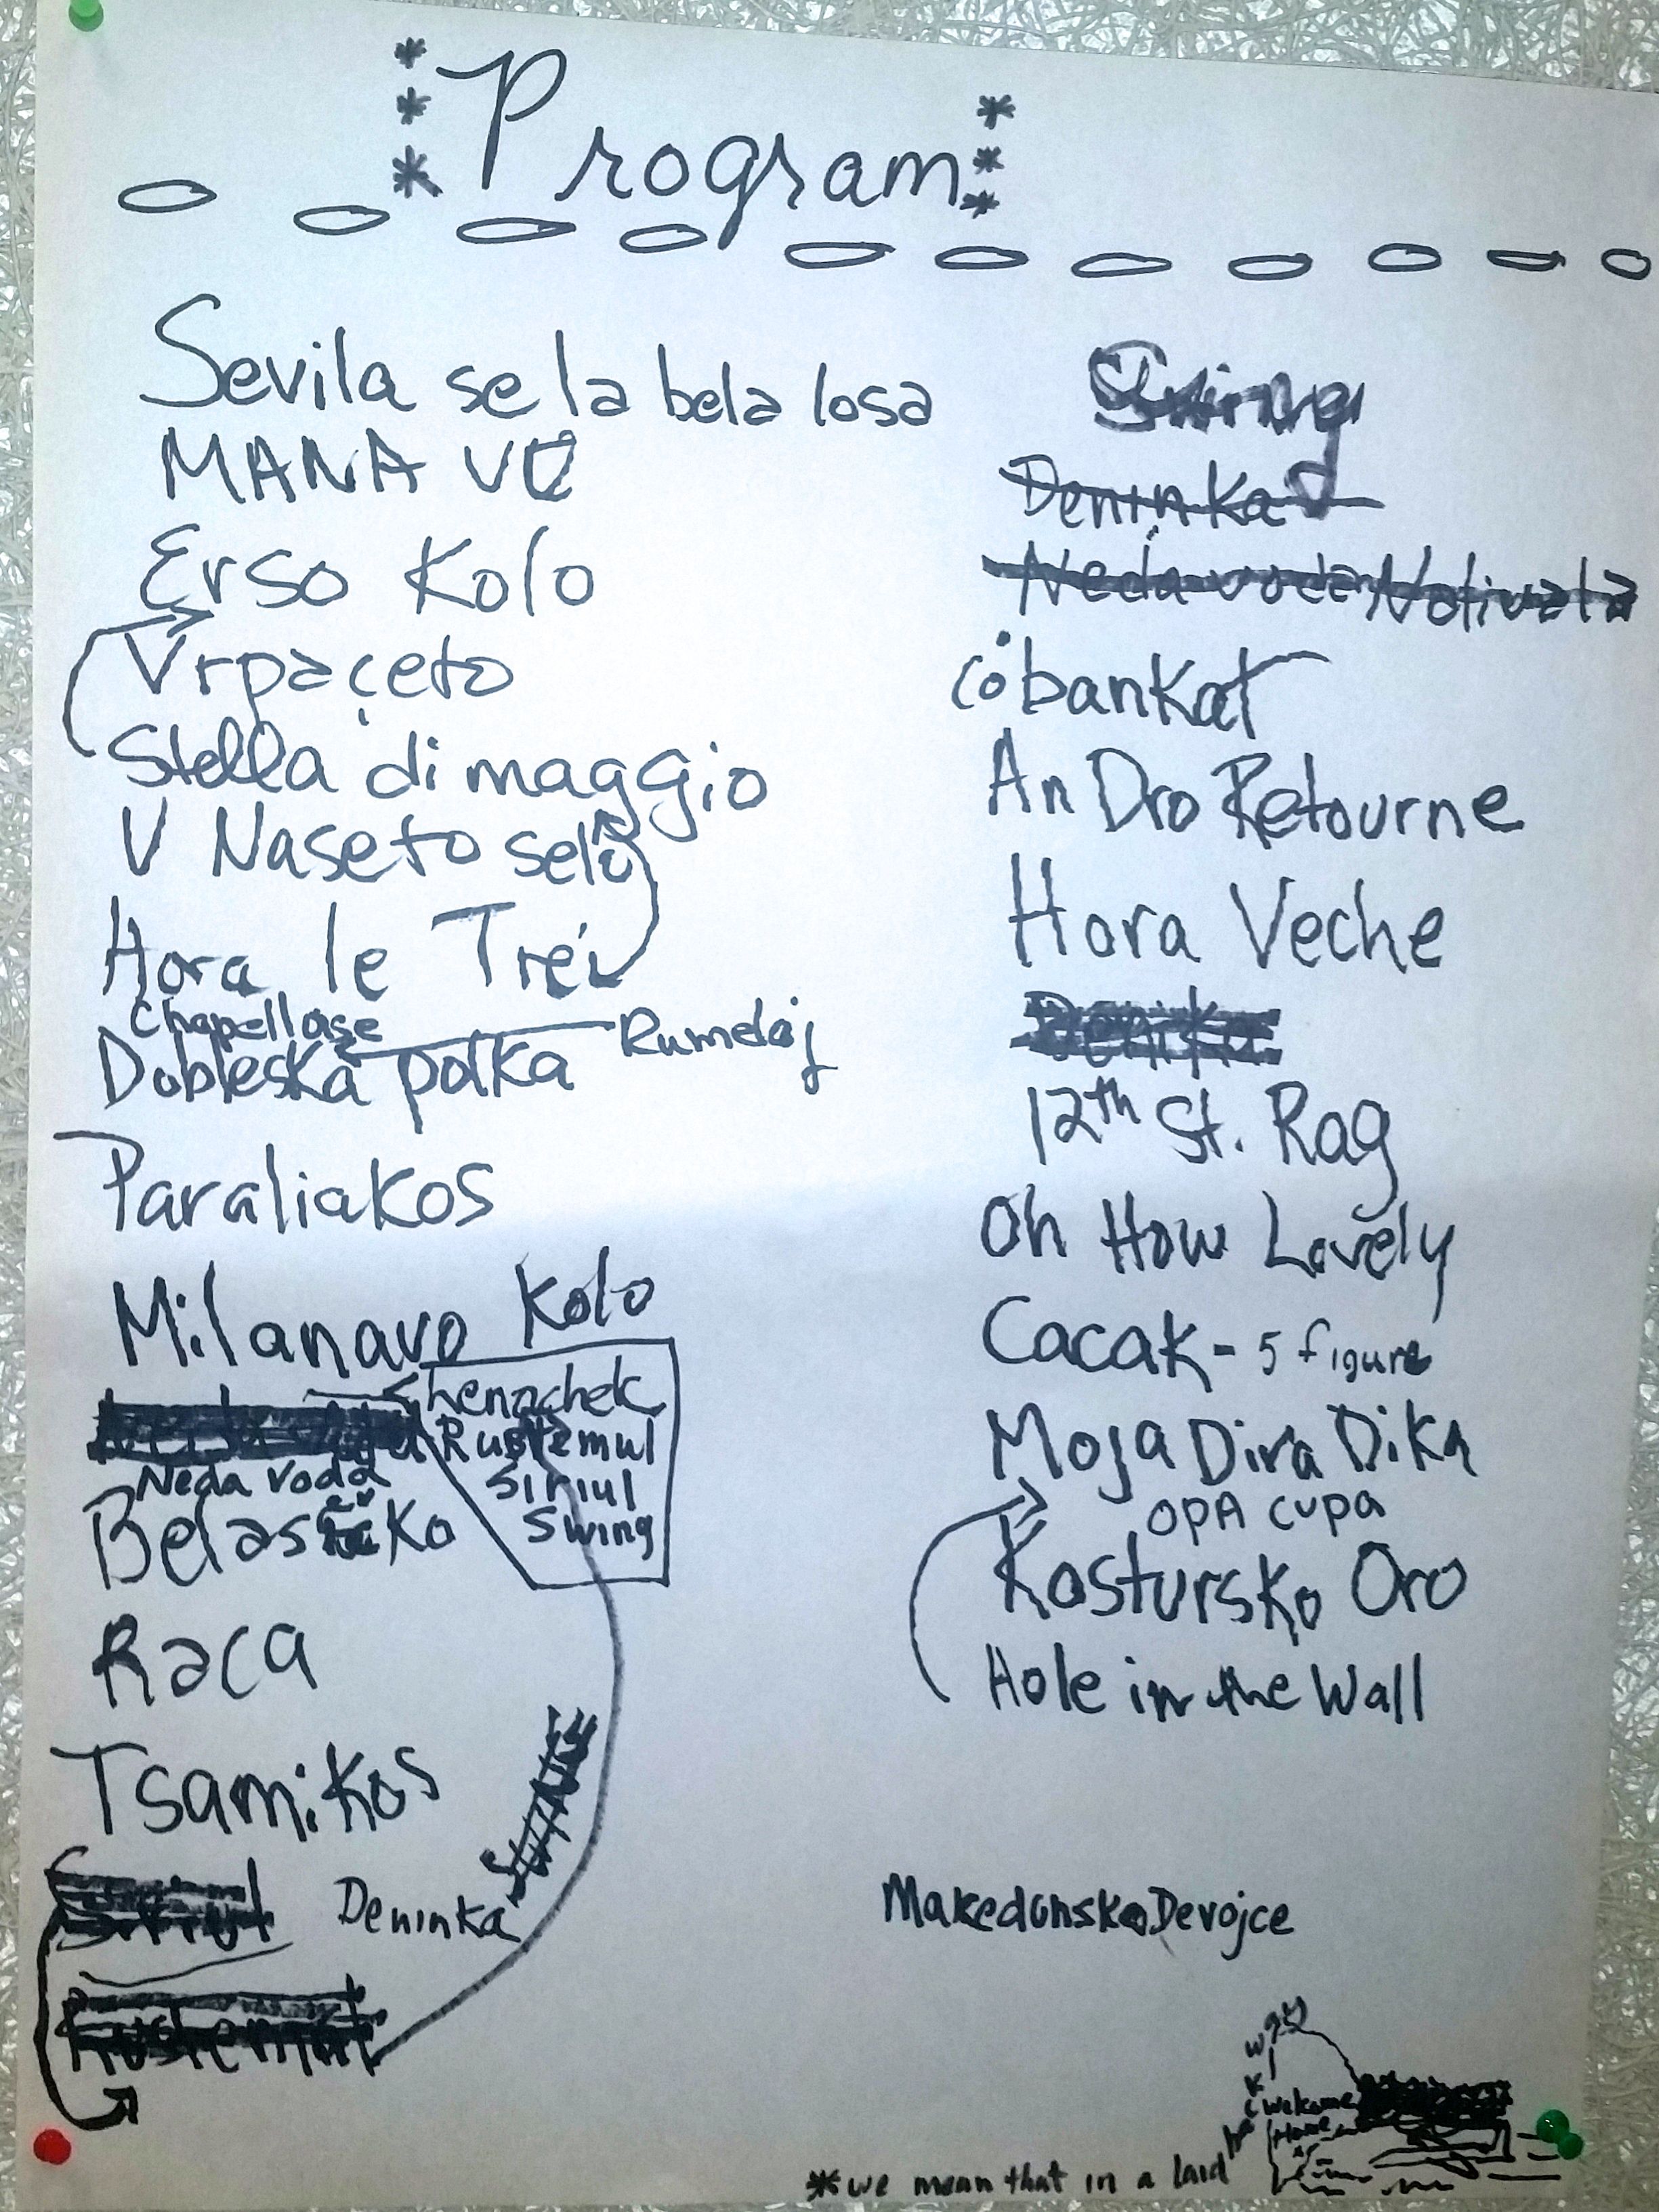 Program
Sevila se la bela losa
MANA VU
Erso Kolo
Vrpaçeto
Stella di maggio
V Naseto selo
Hora le Trei
Chapellase
Dobleska polka Rumelaj
Paraliakos
Milanavo Kolo
henachek
Rustemul
Siriul
Swing
Neda voda
Belasicko
Raca
Tsamikos
Deninka
Swing
Deninka
Neda voda Nalivala
cobankat
An Dro Retourne
Hora Veche
Deninka
12th St. Rag
Oh How Lovely
Cacak - 5 figure
Moja Dira Dika
OPA cupa
Kastursko Oro
Hole in the Wall
Makedonsko Devojce
Welcome
Home
*we mean that in a laid